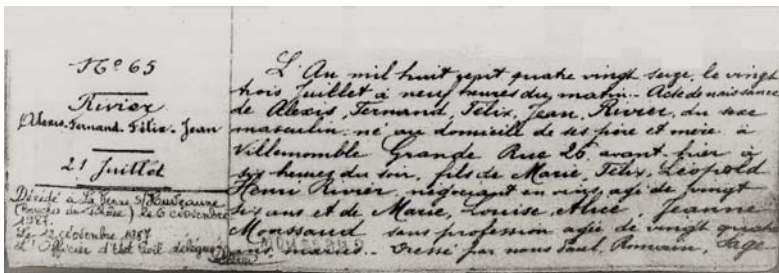 N° 65
Rivier
Alexis-Fernand-Félix-Jean
21 Juillet
Décédé à La Penne S/Huveaune
(Bouches du Rhône) le 6 décembre
1987.
Le 12 décembre 1987
L'Officier d'Etat Civil délégué
L'An mil huit cent quatre vingt seize, le vingt
trois Juillet à neuf heures du matin. Acte de naissance
de Alexis, Fernand, Félix, Jean, Rivier, du sexe
masculin, né au domicile de ses père et mère à
Villemomble Grande Rue 26, avant-hier à
six heures du soir, fils de Marie, Félix, Léopold
Henri Rivier, négociant en vins, agé de vingt
six ans et de Marie, Louise, Alice, Jeanne
Moussaud sans profession agée de vingt quatre
ans, mariés. Dressé par nous Paul, Romain,